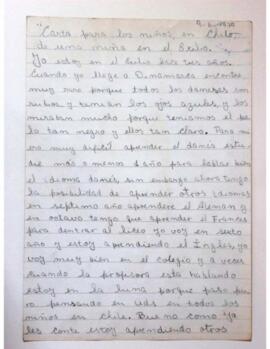 "Carta para los niños, en Chile
de una niña en el Exilio."
Yo estoy en el Exilio hace tres años.
Cuando yo llege a Dinamarca encontre
muy raro porque todos los daneses son
rubios y tenian los ojos azules, y los
miraban mucho porque teniamos el pe
lo tan negro y ellos tan claro. Para mi
era muy dificil aprender el danés estu
die mas o menos 1 año para hablar bien
el idioma danés, sin embargo ahora tengo
la posibilidad de aprender otros idiomas
en septimo año aprendere el Aleman y
en octavo tengo que aprender el Frances
para dentrar al liceo yo voy en sexto
año y estoy aprendiendo el Ingles, yo
voy muy bien en el colegio y a veces
cuando la profesora esta hablando
estoy en la luna porque paso puro
pensando en uds en todos los
niños en Chile. Bueno como Ya
les conte estoy aprendiendo otros